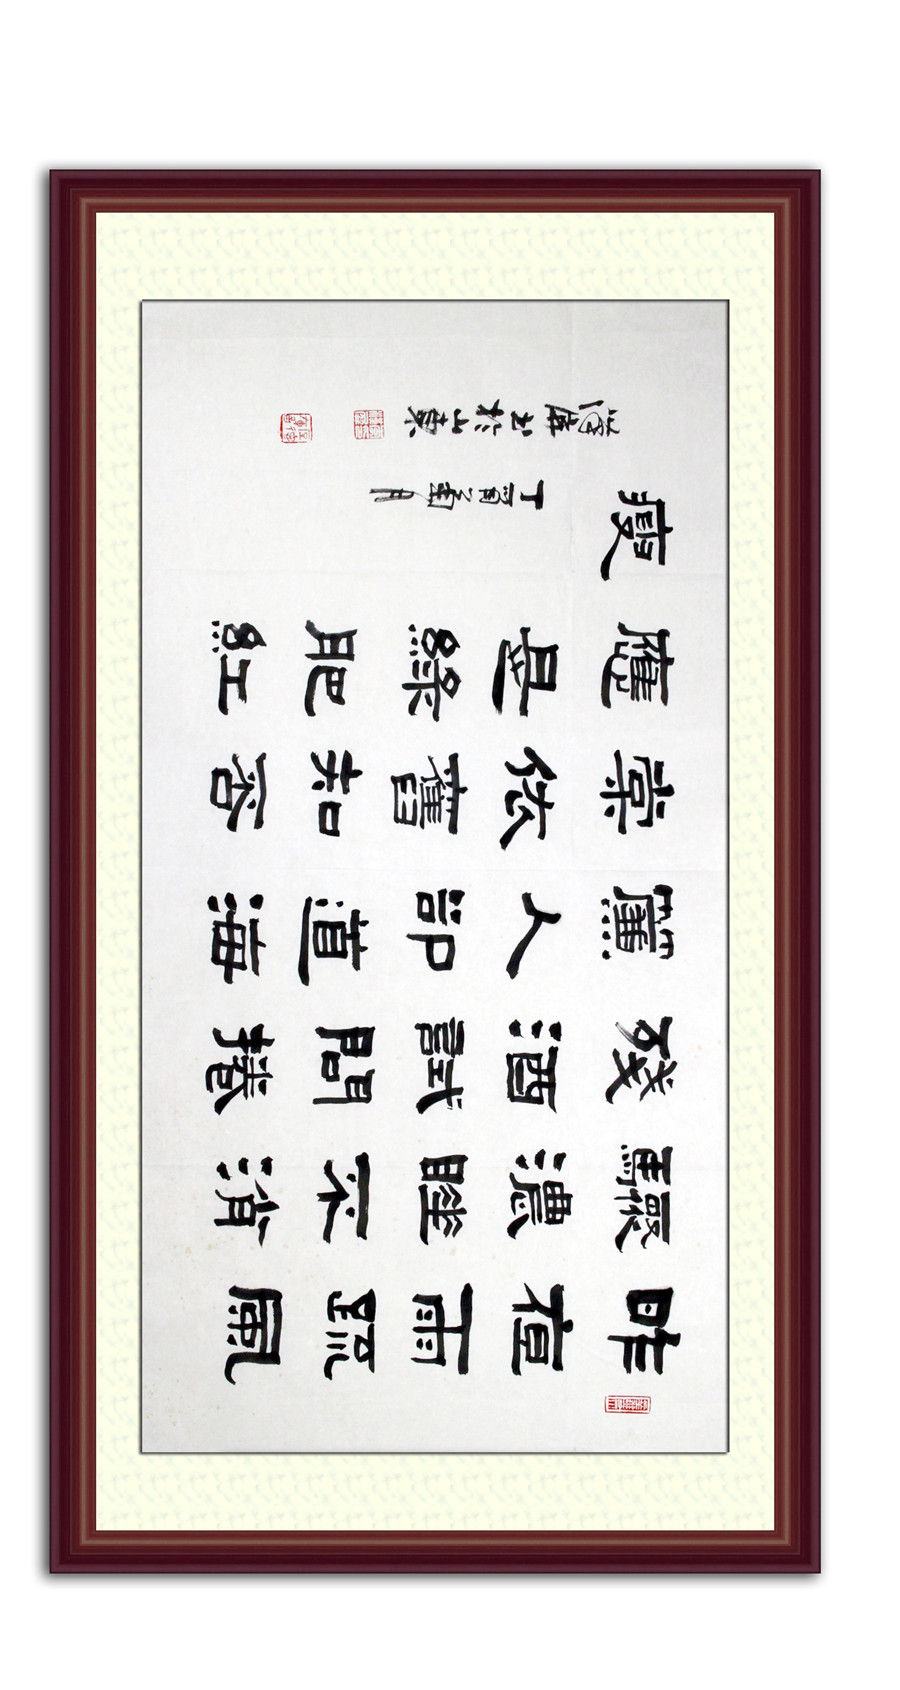 昨夜雨疏風
驟濃睡不消
殘酒試問捲
簾人卻道海
棠依舊知否
應是綠肥紅
瘦 丁酉菊月
書於山東